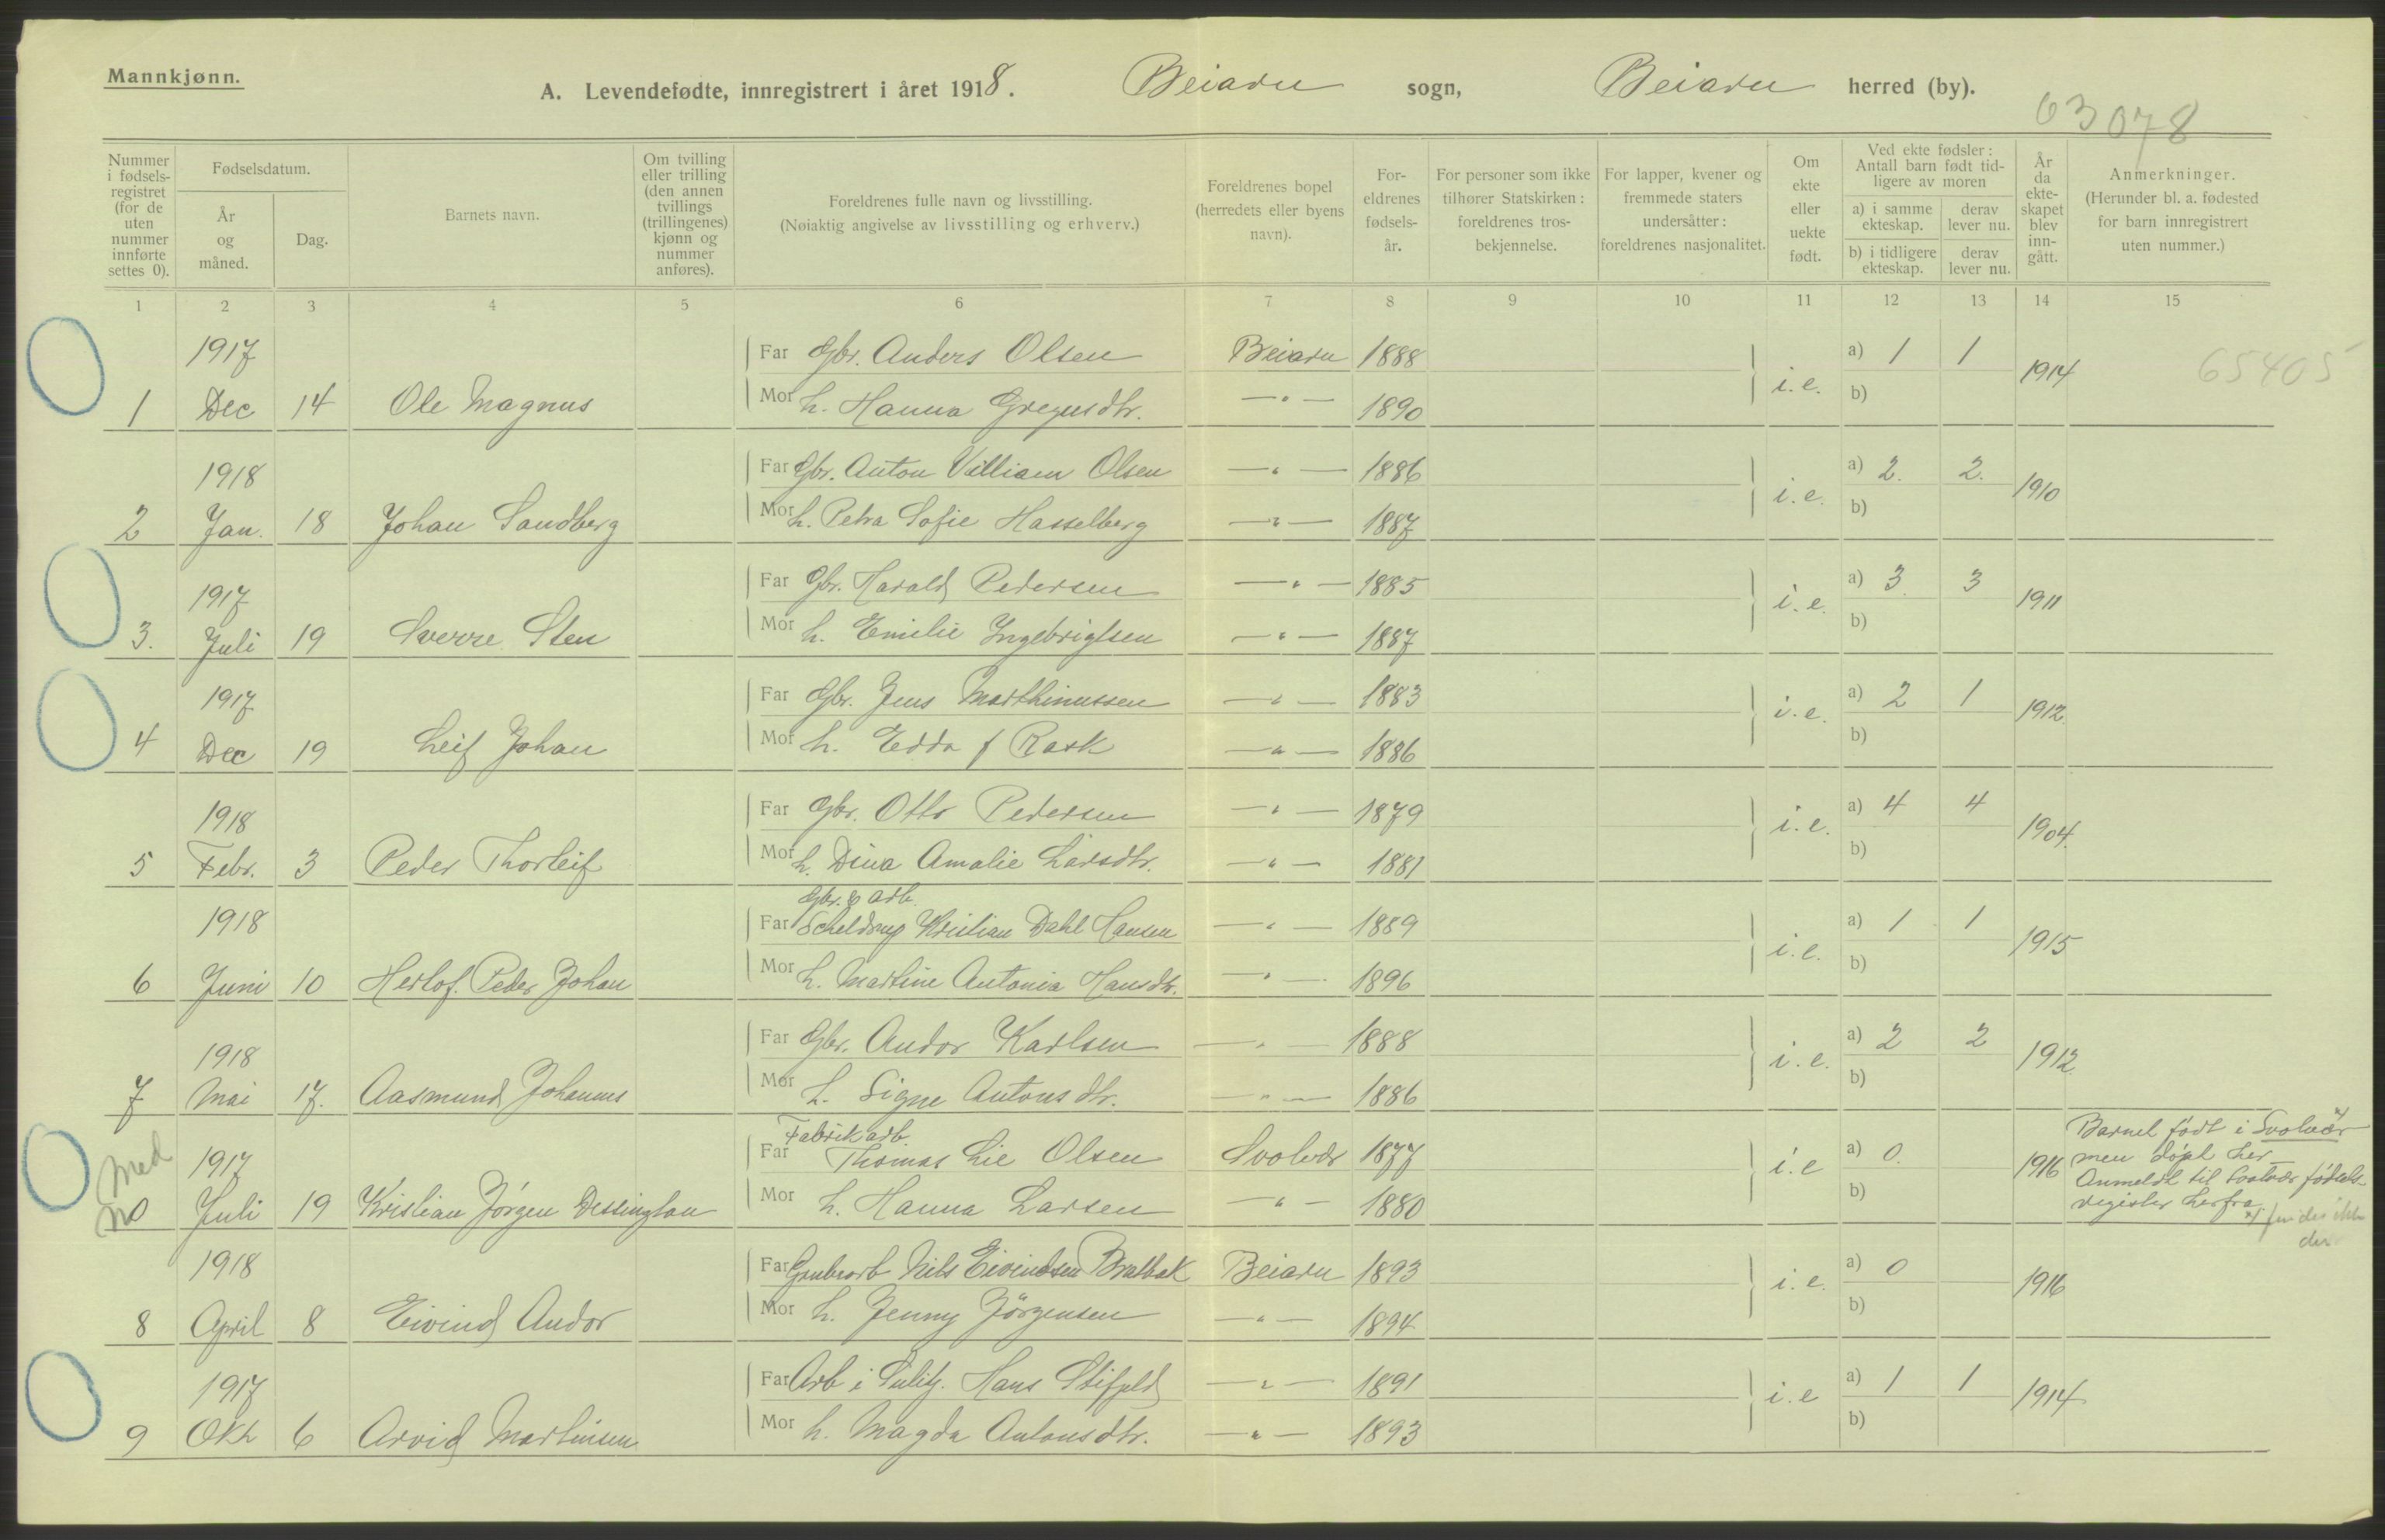 Mannkjønn.
A. Levendefødte, innregistrert i året 1918. Beiarn sogn, Beiarn herred (by).
63078
Nummer i fødselsregistret (for de uten nummer innførte settes 0).
Fødselsdatum.
År og måned.
Dag.
Barnets navn.
Om tvilling eller trilling (den annen tvillings (trillingenes) kjønn og nummer anføres).
Foreldrenes fulle navn og livsstilling.
(Nøiaktig angivelse av livsstilling og erhverv.)
Foreldrenes bopel (herredets eller byens navn).
Foreldrenes fødselsår.
For personer som ikke tilhører Statskirken: foreldrenes trosbekjennelse.
For lapper, kvener og fremmede staters undersåtter: foreldrenes nasjonalitet.
Om ekte eller uekte født.
Ved ekte fødsler: Antall barn født tidligere av moren
a) i samme ekteskap.
derav lever nu.
b) i tidligere ekteskap.
derav lever nu.
År da ekteskapet blev inngått.
Anmerkninger.
(Herunder bl. a. fødested for barn innregistrert uten nummer.)
1 2 3 4 5 6 7 8 9 10 11 12 13 14 15
1917 Far Gbr. Anders Olsen Beiarn 1888 a) 1 1 65405
1 Dec 14 Ole Magnus Mor h. Hanna Gregusdtr. —"— 1890 i.e. b) 1914
1918 Far Gbr. Anton Villiam Olsen —"— 1886 a) 2. 2.
2 Jan. 18 Johan Sandberg Mor h. Petra Sofie Hasselberg —"— 1887 i.e. b) 1910
1917 Far Gbr. Harald Pedersen —"— 1885 a) 3. 3
3. Juli 19 Sverre Sten Mor h. Emilie Ingebrigtsen —"— 1887 i.e. b) 1911
1917 Far Gbr. Jens Marthinussen —"— 1883 a) 2 1
4 Dec 19 Leif Johan Mor h. Edda f Rask —"— 1886 i.e. b) 1912.
1918 Far Gbr. Otto Pedersen —"— 1879 a) 4 4
5 Febr. 3 Peder Thorleif Mor h. Dina Amalie Larsdtr. —"— 1881 i.e. b) 1904.
Gbr. & arb.
1918 Far Scheldrup Kristian Dahl Hansen —"— 1889 a) 1 1
6 Juni 10 Herlof. Peder Johan Mor h. Martine Antonia Hansdtr. —"— 1896 i.e. b) 1915
1918 Far Gbr. Andor Karlsen —"— 1888 a) 2 2
7 Mai 17. Aasmund Johannes Mor h. Signe Antonsdtr. —"— 1886 i.e. b) 1912
Fabrikarb.
Med 1917 Far Thomas Lie Olsen Svolvær 1877 a) 0.
0 Juli 19 Kristian Jörgen Dessington Mor h. Hanna Larsen —"— 1880 i.e b) 1916
Barnet født i Svolvær
men døpt her
Anmeldt til Svolvær fødsels-
register herfra
1918 Far Grubearb Nils Eivindsen Bratbak Beiarn 1893 a) 0
8 April 8 Eivind Andor Mor h. Jenny Jörgensen —"— 1894 i.e. b) 1916
1917 Far Arb i Sulitj. Hans Stifjeld —"— 1891 a) 1 1
9 Okt 6 Arvid Martinsen Mor h. Magda Antonsdtr. —"— 1893 i.e b) 1914